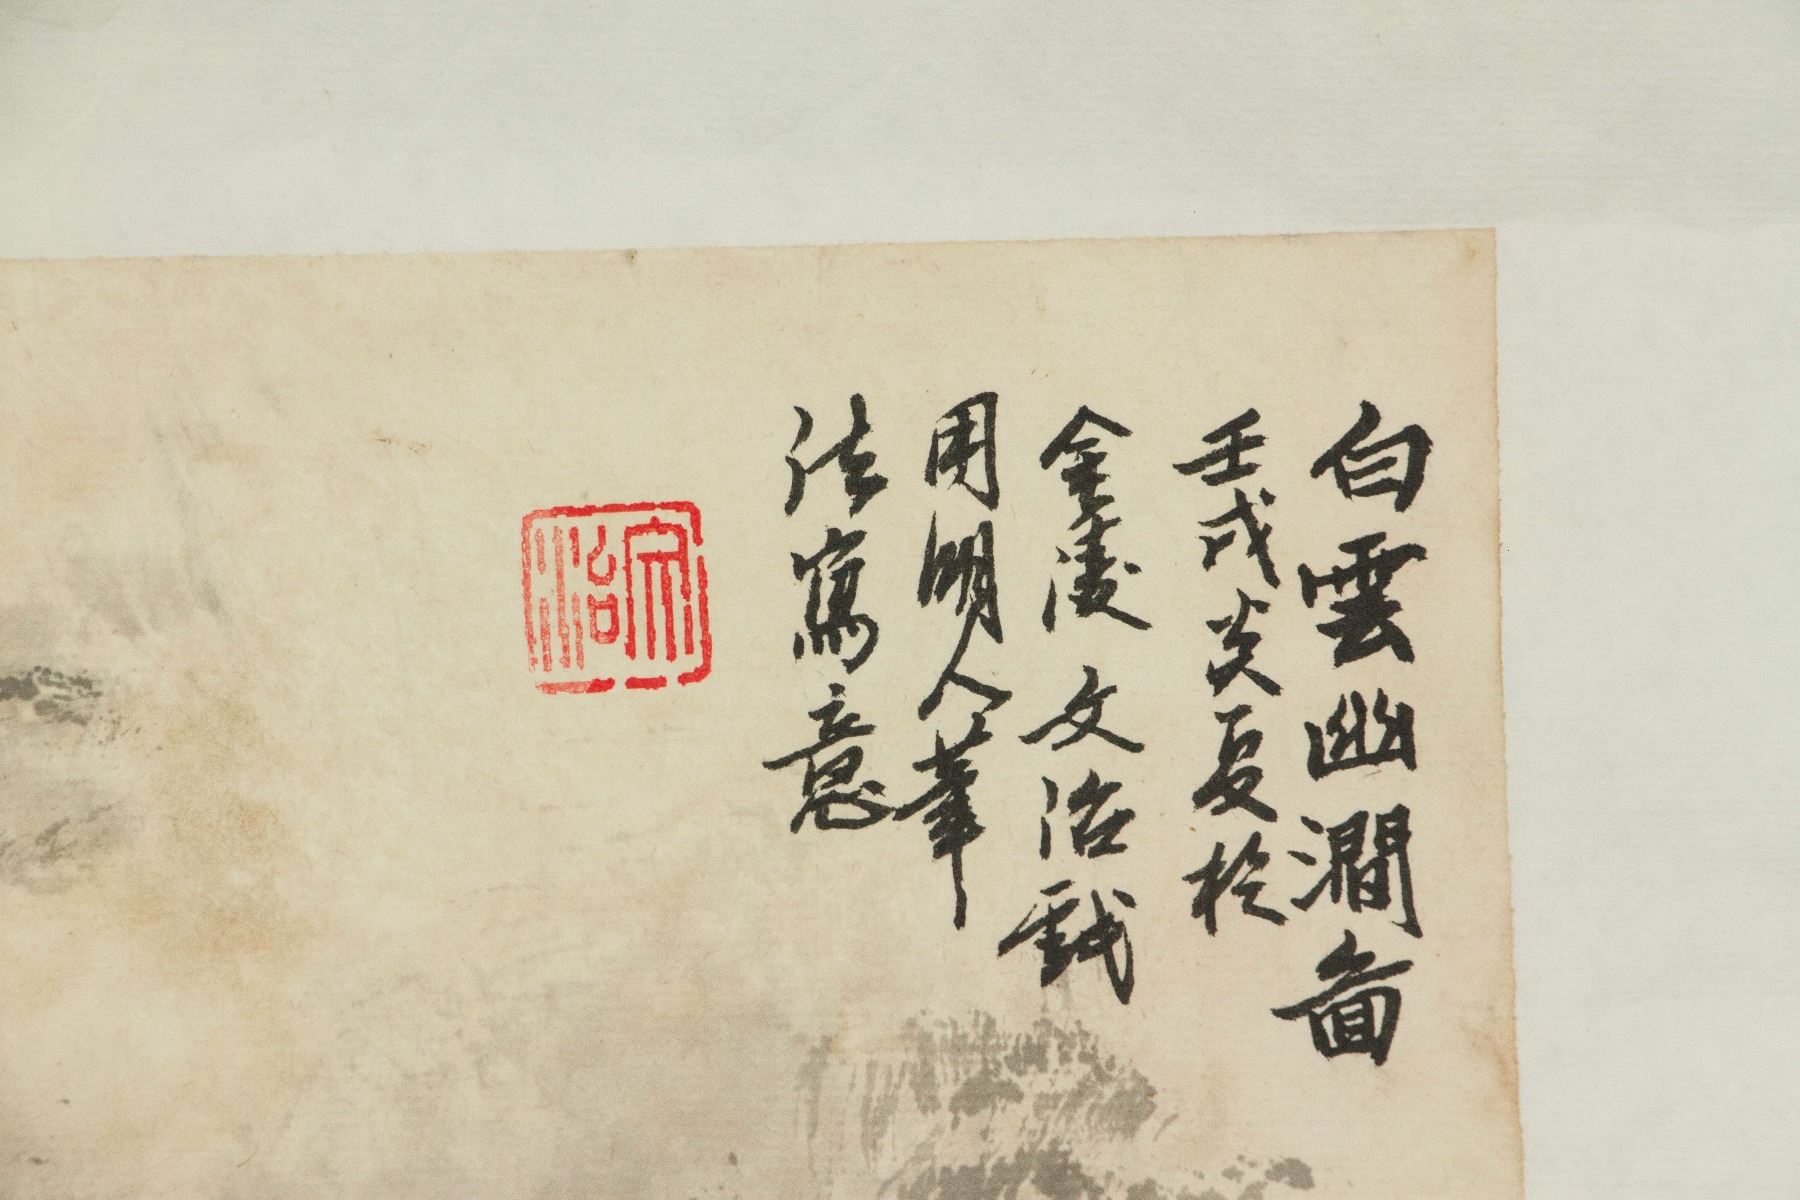 白雲幽澗畣
壬戌炎夏於
金陵文治戲
用明人筆
法寫意
宗治